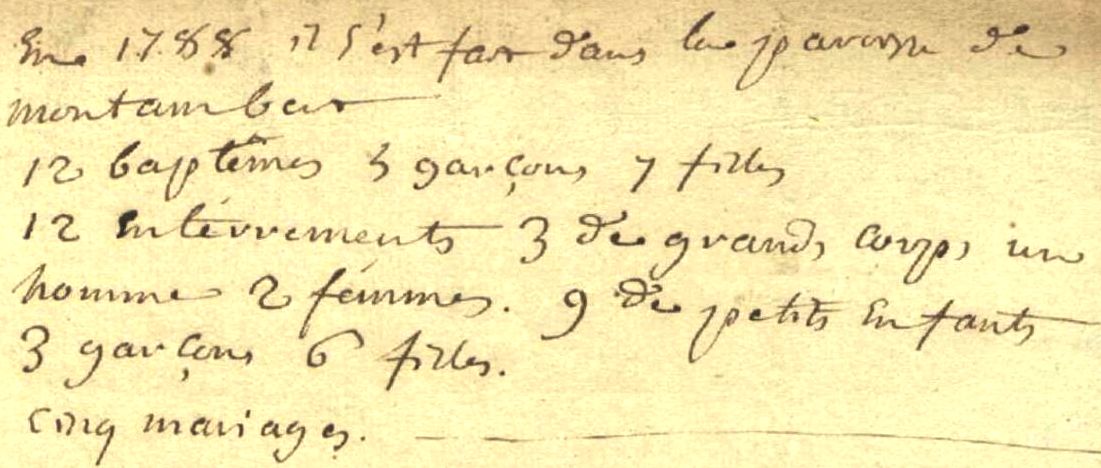 En 1788 il s'est fait dans la paroisse de
montambert
12 baptêmes 5 garçons 7 filles
12 enterrements 3 de grands corps un
homme 2 femmes. 9 de petits enfants
3 garçons 6 filles.
cinq mariages.